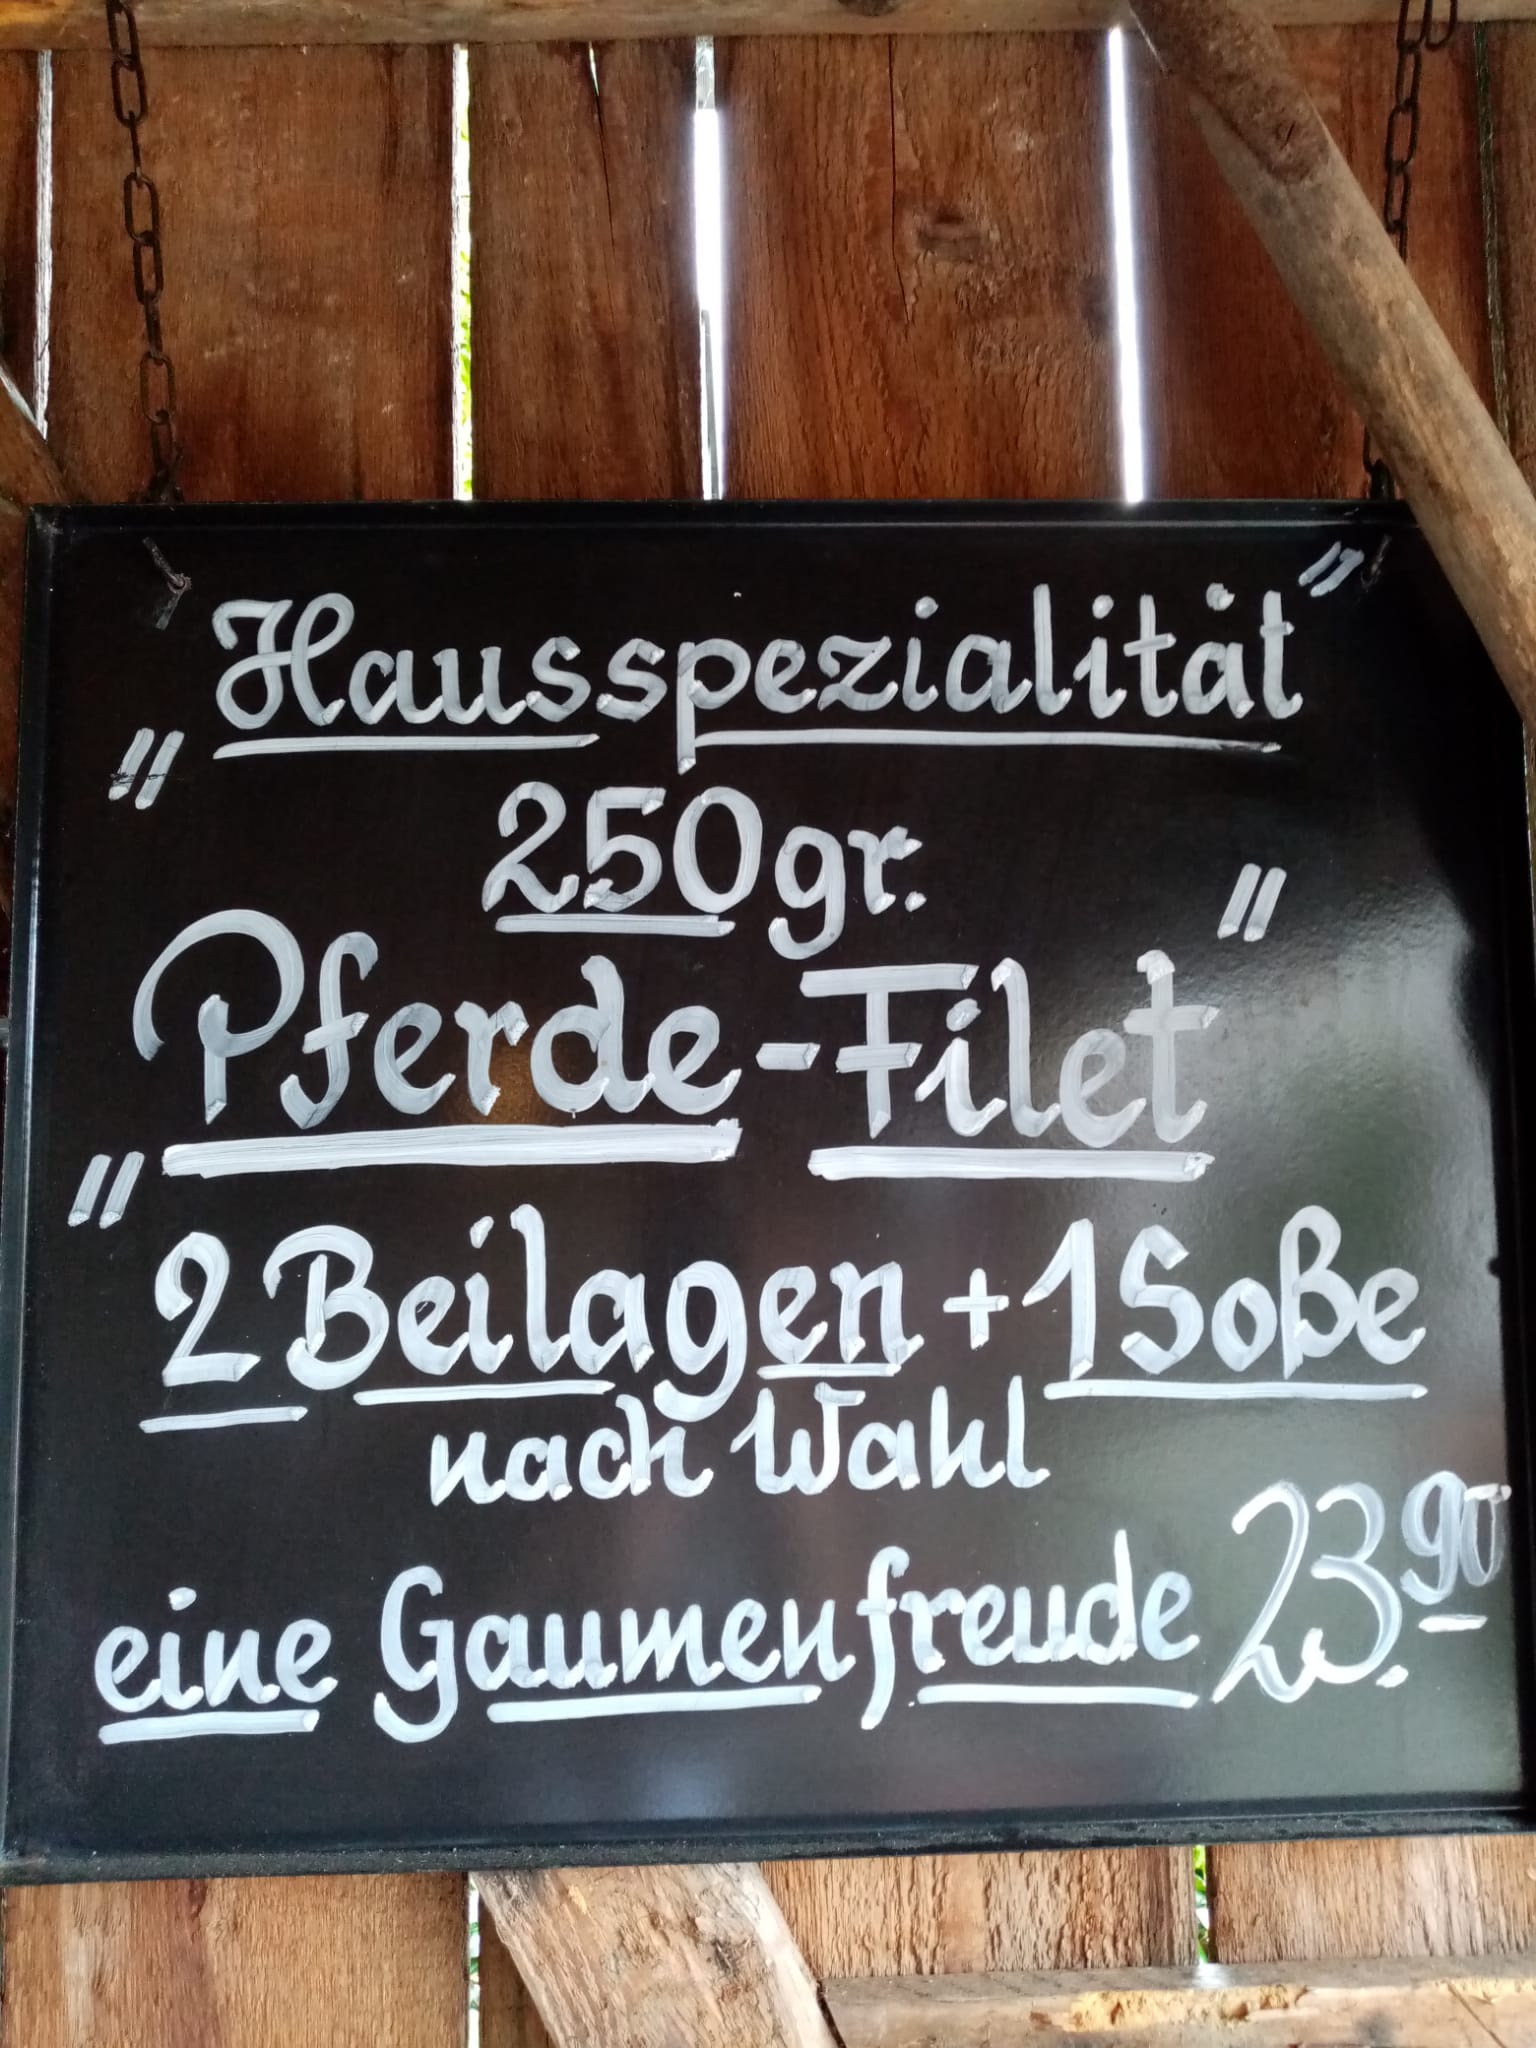 "Hausspezialität"
250gr.
"Pferde-Filet"
2 Beilagen + 1 Soße
nach Wahl
eine Gaumenfreude 23.90